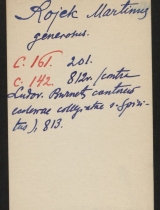 Rojek Martinus
generosus.
C. 161. 201.
C. 142. 812v. /contra
Ludov. Burnetz cantorem
ecclesiae collegiatae s. Spiri-
tus/, 813.